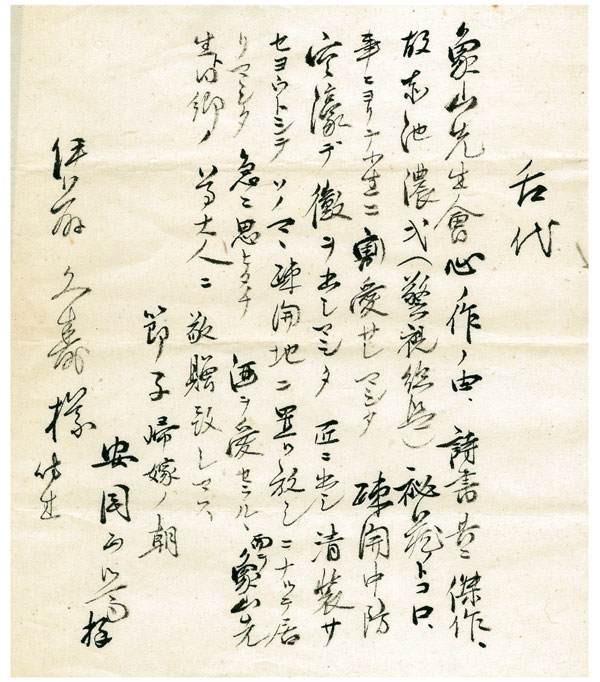 舌代
象山先生會心ノ作ノ由、詩書共ニ傑作、
故赤池濃氏(警視総監)秘蔵トコロ、
事ヒヨリ小生ニ割愛セシマシタ 疎開中防
空濠デ黴ヲ出シマシタ 匠ニ出シ清装サ
セヨウトシテソノマヽ疎開地ニ置キ放シニナツテ居
リマシタ 急ニ思ヒタチ 酒ヲ愛セラルヽ而シテ象山先
生同郷ノ 尊大人ニ 敬贈致シマス
節子帰嫁ノ朝
安岡正篤拝
久壽様